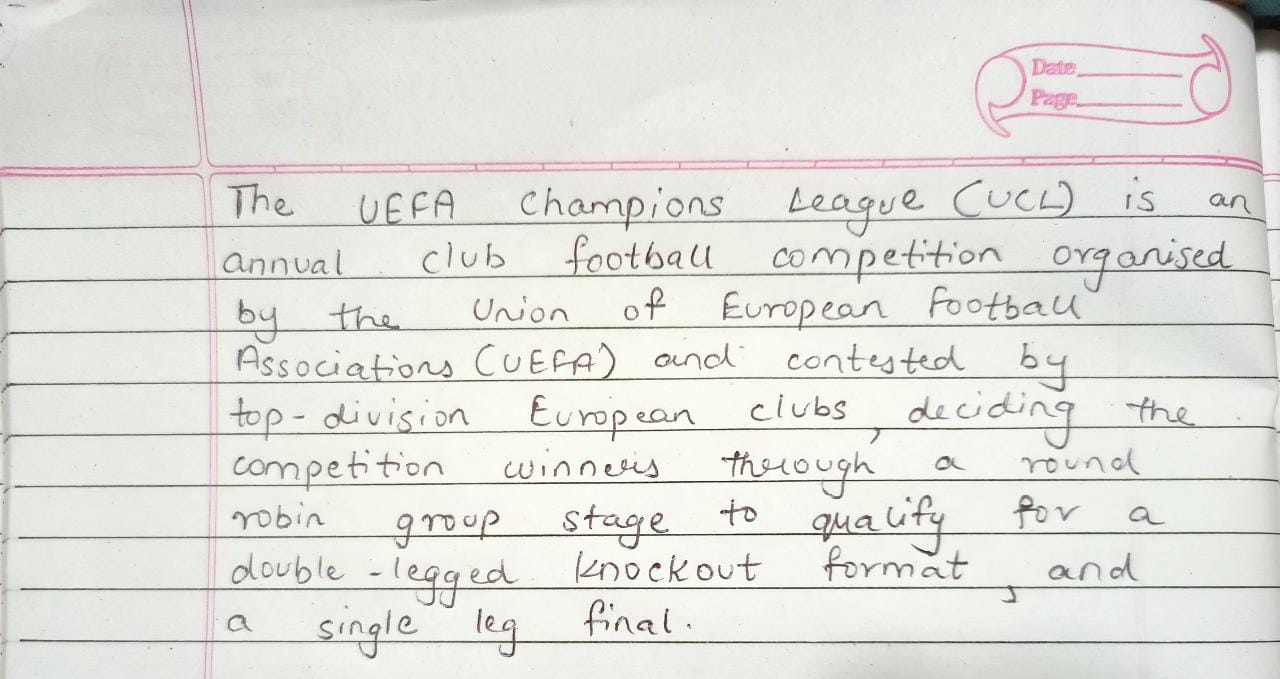 Date
Page
The UEFA Champions League (UCL) is an
annual club football competition organised
by the Union of European Football
Associations (UEFA) and contested by
top-division European clubs, deciding the
competition winners through a round
robin group stage to qualify for a
double-legged knockout format, and
a single leg final.